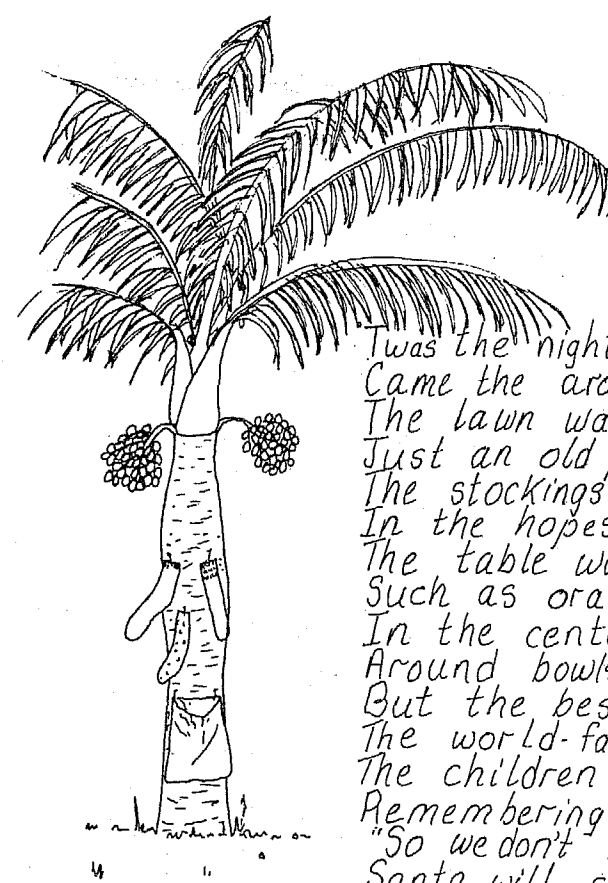 'Twas the night
Came the
The lawn
Just an old
The stockings
In the hopes
The table
Such as
In the
Around
But the
The world-
The children
Remembering
"So we don't
Santa will